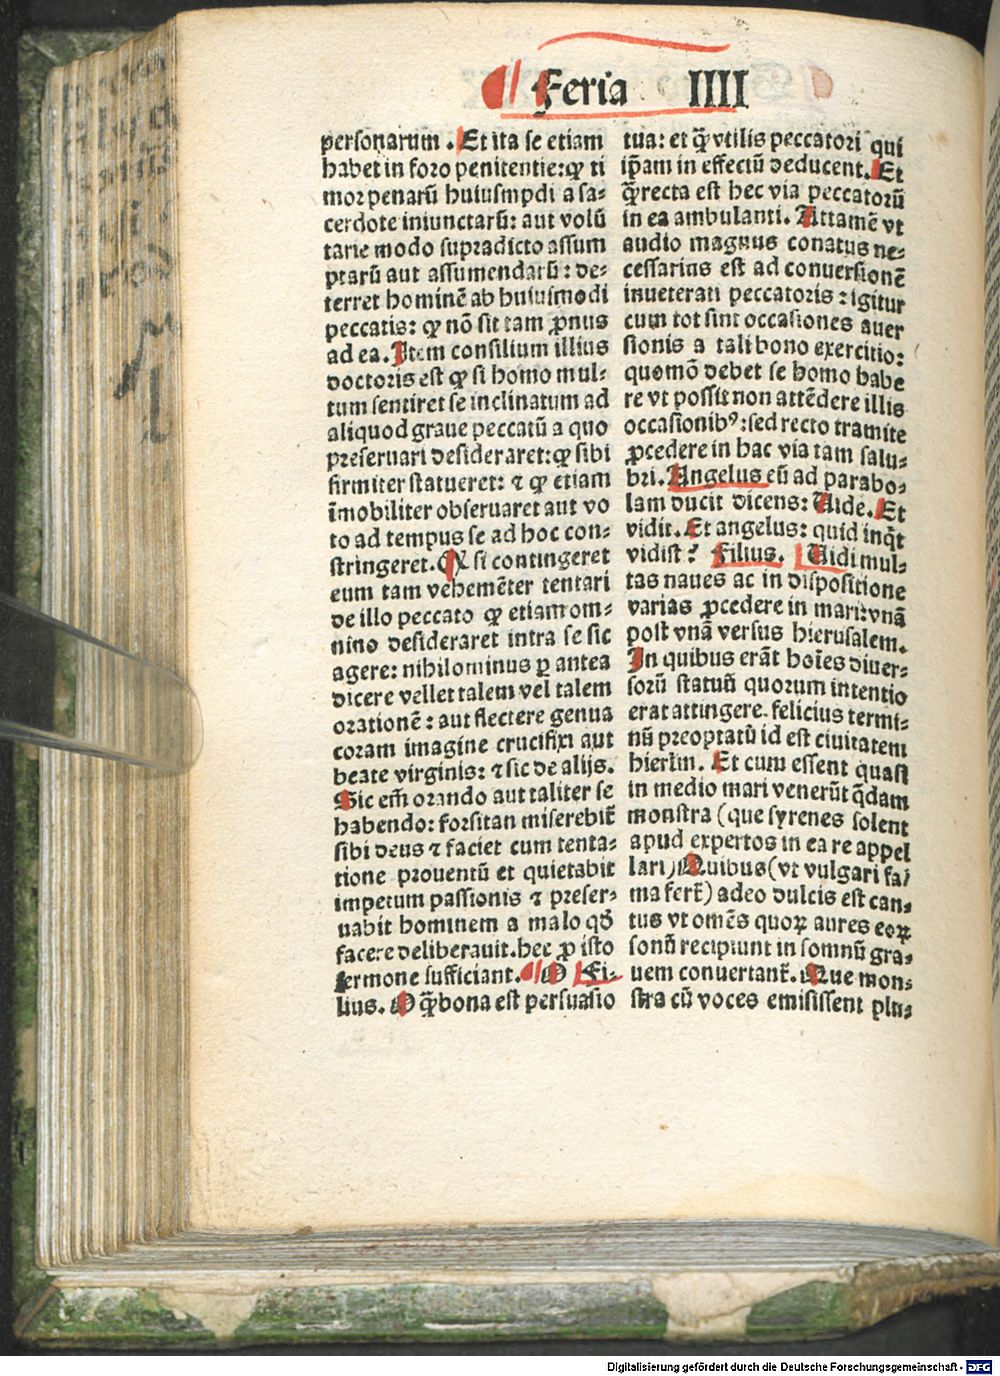 Feria IIII
personarum . Et ita se etiam
habet in foro penitentie: ꝙ ti
mor penarū huiusmodi a sa⸗
cerdote iniunctarū: aut volū
tarie modo supradicto assum
ptarū aut assumendarū : de⸗
terret hominē ab huiuimodi
peccatis: ꝙ nō sit tam ꝓnus
ad ea. Item consilium illius
doctoris est ꝙ si homo mul⸗
tum sentiret se inclinatum ad
aliquod graue peccatū a quo
preseruari desideraret: ꝙ sibi
firmiter statueret: ⁊ ꝙ etiam
īmobiliter obseruaret aut vo
to ad tempus se ad hoc con⸗
stringeret. Ꝙ si contingeret
eum tam vehemēter tentari
de illo peccato ꝙ etiam om⸗
nino desideraret intra se sic
agere: nihilominus ꝑ antea
dicere vellet talem vel talem
orationē : aut flectere genua
coram imagine crucifixi aut
beate virginis: ⁊ sic de alijs.
Sic em̄ orando aut taliter se
habendo: forsitan miserebit̄
sibi deus ⁊ faciet cum tenta⸗
tione prouentū et quietabit
impetum passionis ⁊ preser⸗
uabit hominem a malo qd̄
facere deliberauit. hec ꝓ isto
sermone sufficiant. O Fi⸗
lius. O q̄ bona est persuasio
tua: et q̄ vtilis peccatori qui
ip̄am in effectū deducent. Et
q̄ recta est hec via peccatorū
in ea ambulanti. Attamē vt
audio magnus conatus ne⸗
cessarius est ad conuersionē
inueterati peccatoris : igitur
cum tot sint occasiones auer
sionis a tali bono exercitio:
quomō debet se homo habe
re vt possit non attēdere illis
occasionibꝰ: sed recto tramite
ꝓcedere in hac via tam salu⸗
bri. Angelus eū ad parabo⸗
lam ducit dicens: Uide. Et
vidit. Et angelus: quid inq̄t
vidisti? Filius. Uidi mul⸗
tas naues ac in dispositione
varias ꝓcedere in mari: vnā
post vnā versus hierusalem.
In quibus erāt hoīes diuer⸗
sorū statuū quorum intentio
erat attingere. felicius termi⸗
nū preoptatū id est ciuitatem
hierl̄m. Et cum essent quasi
in medio mari venerūt q̄dam
monstra (que syrenes solent
apud expertos in ea re appel
lari) Quibus (vt vulgari fa⸗
ma fert̄) adeo dulcis est can⸗
tus vt omēs quoꝝ aures eoꝝ
sonū recipiunt in somnū gra⸗
uem conuertant̄. Que mon⸗
stra cū voces emisissent plu⸗
Digitalisierung gefördert durch die Deutsche Forschungsgemeinschaft - DFG